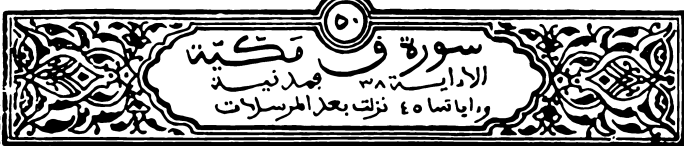 ٥٠
سورة ق مكية
الا اية ٣٨ فمدنية
واياتها ٤٥ نزلت بعد المرسلات